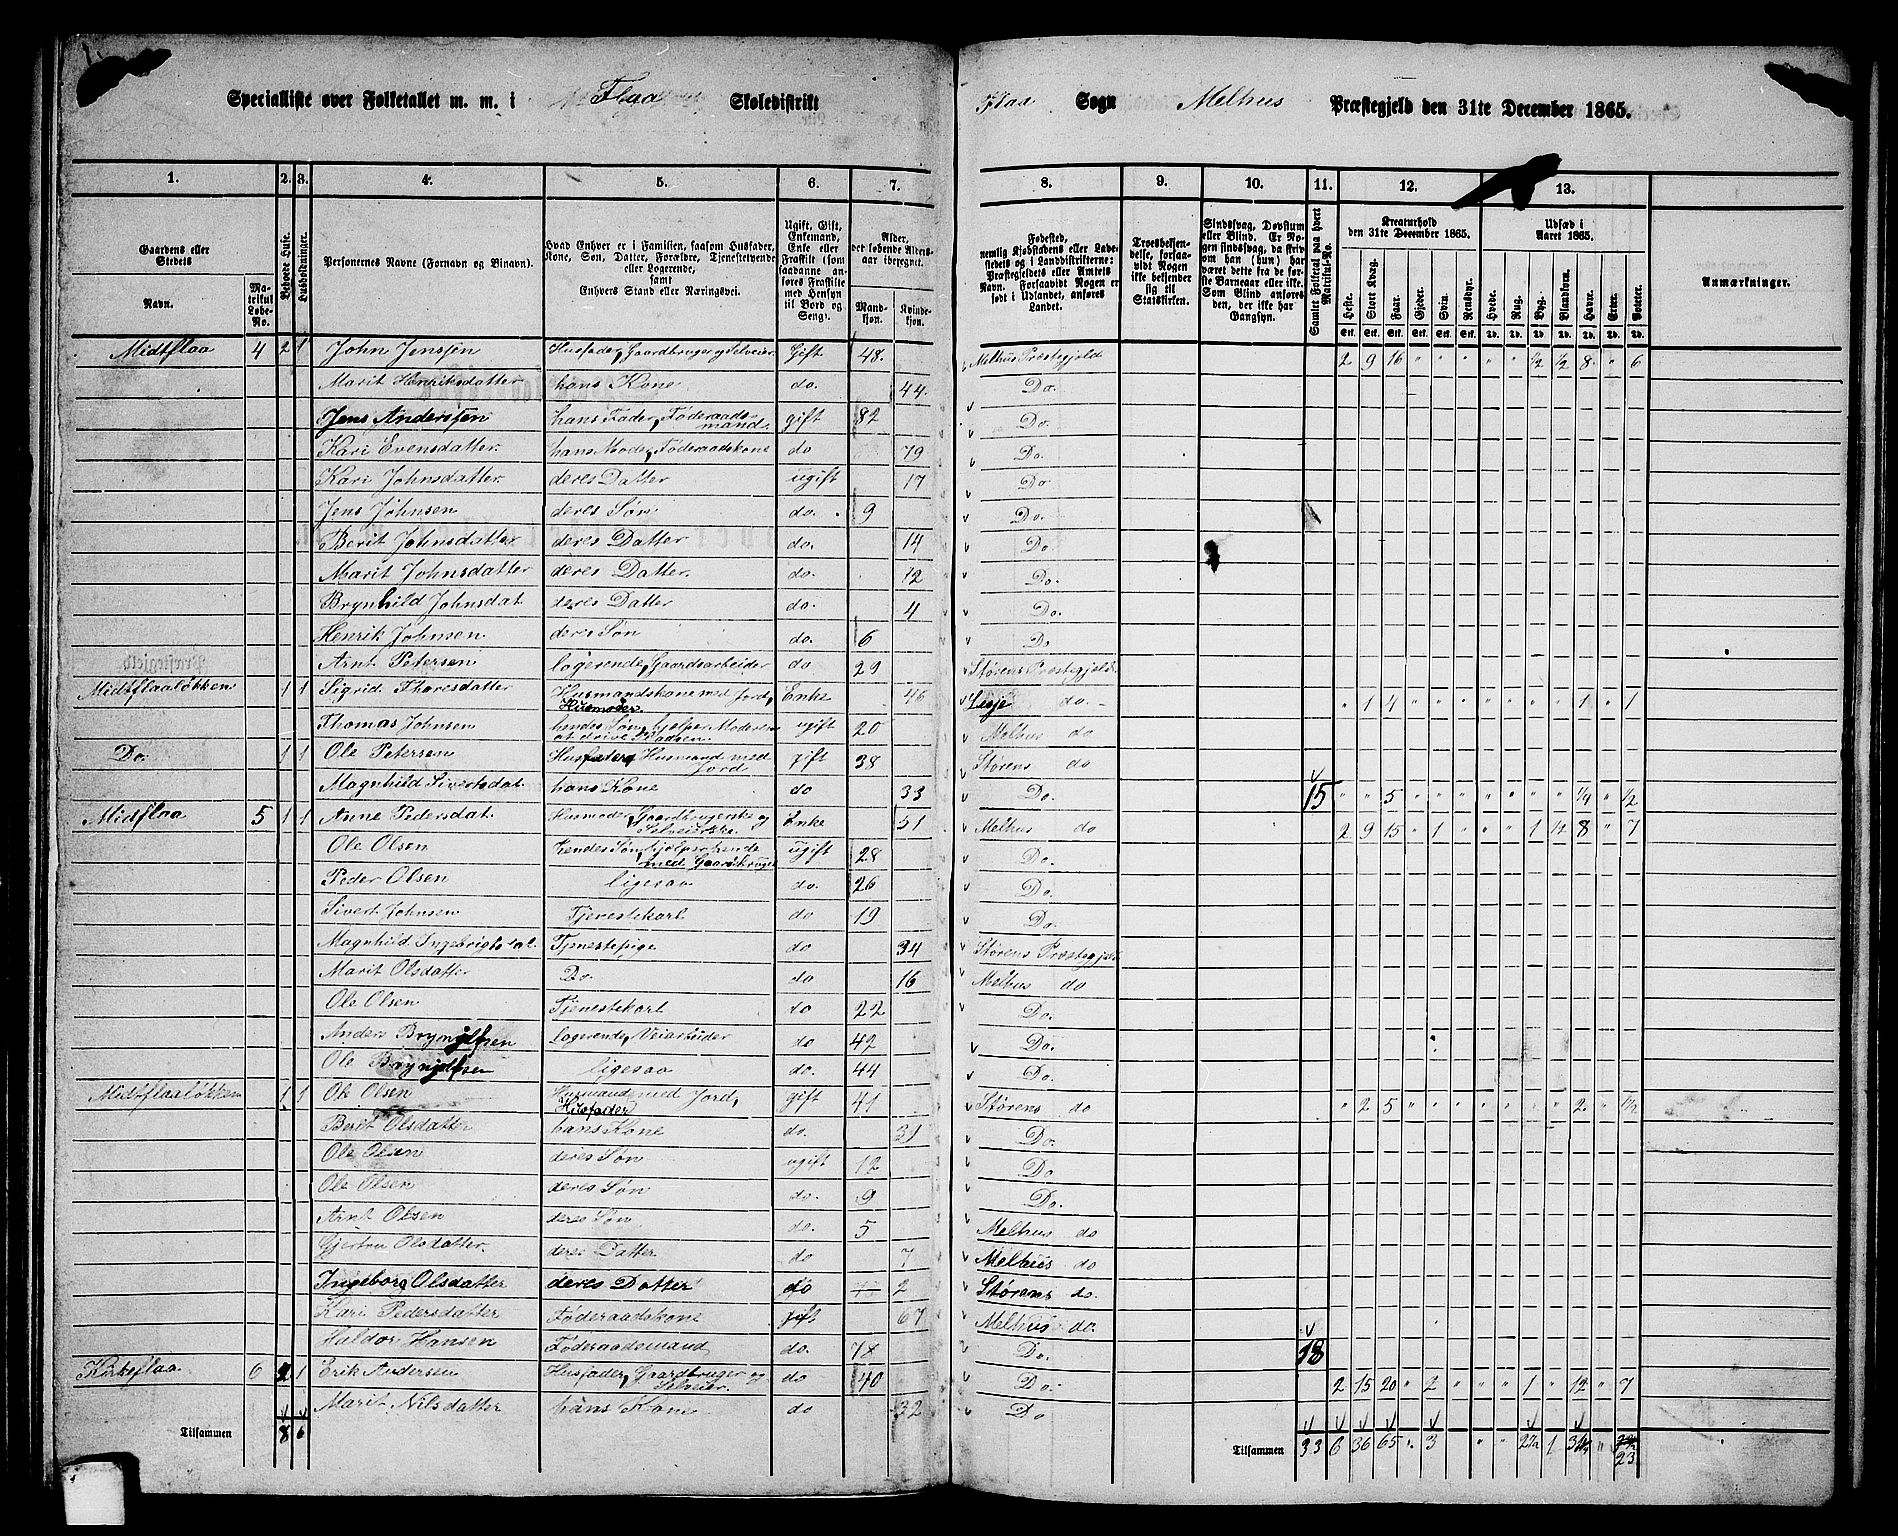 Specialliste over Folketallet m. m. i Flaa Skoledistrikt Flaa Sogn Melhus Præstegjeld den 31te December 1865.
1. 2. 3. 4. 5. 6. 7. 8. 9. 10. 11. 12. 13.
Gaardens eller Stedets
Navn.
Matrikul Løbe-No.
Beboede Huse.
Husholdninger.
Personernes Navne (Fornavn og Binavn).
Hvad Enhver er i Familien, saasom Husfader, Kone, Søn, Datter, Forældre, Tjenestetyende eller Logerende, samt Enhvers Stand eller Næringsvei.
Ugift, Gift, Enkemand, Enke eller Fraskilte (som saadanne anføres Fraskilte med Hensyn til Bord og Seng).
Alder, det løbende Alders-aar iberegnet.
Mandkjøn. Kvindekjøn.
Fødested, nemlig Kjøbstadens eller Ladestedets og i Landdistrikterne: Præstegjeldets eller Amtets Navn. Forsaavidt Nogen er født i Udlandet, anføres Landet.
Troesbekjendelse, forsaavidt Nogen ikke bekjender sig til Statskirken.
Sindssvag, Døvstum eller Blind. Er Nogen sindssvag, da skrives om han (hun) har været dette fra de første Barneaar eller ikke. Som Blind anføres den, der ikke har Gangsyn.
Samlet Folketal paa hvert Matrikul-No.
Kreaturhold den 31te December 1865.
Heste. Stort Kvæg. Faar. Gjeder. Svin. Rensdyr.
Udsæd i Aaret 1865.
Hvede. Rug. Byg. Blandkorn. Havre. Erter. Poteter.
Anmærkninger.
Midtflaa 4 2 1 John Jenssen Husfader, Gaardbruger og Selveier Gift 48. Melhus Præstegjeld 2 9 16 " " " " " ½ ½ 8 " 6
Marit Henriksdatter hans Kone do. 44. Do.
Jens Anderssen hans Fader, Føderaadsmand. gift 82 Do.
Kari Evensdatter hans Moder, Føderaadskone do 79 Do.
Kari Johnsdatter deres Datter ugift 17 Do
Jens Johnsen deres Søn do. 9 Do.
Berit Johnsdatter deres Datter do. 14 Do.
Marit Johnsdatter deres Datter. do. 12 Do.
Brynhild Johnsdat. deres Datter do. 4 Do.
Henrik Johnsen deres Søn do. 6 Do.
Arnt Petersen logerende, Gaardsarbeider do 29 Størens Præstegjeld
Midtflaaløkken 1 1 Sigrid Thoresdatter Husmandskone med Jord, Husmoder Enke 46 Lesje do. " 1 4 " " " " " " " 1 " 1
Thomas Johnsen hendes Søn, hjælper Moderen at drive Pladsen ugift 20 Melhus do
Do. 1 1 Ole Petersen Husfader, Husmand med Jord gift 38 Størens do
Magnhild Sivertsdat. hans Kone do 33 Do. 15 " " 5 " " " " " " " ¼ " ½
Midflaa 5 1 1 Anne Pedersdat. Husmoder, Gaardbrugerske og Selveierske Enke 51 Melhus do 2 9 15 " 1 " " " 1 ½ 8 " 7
Ole Olsen hendes Søn, hjelper hende med Gaardbruget ugift 28 Do.
Peder Olsen ligesaa do. 26 Do.
Sivert Johnsen Tjenestekarl do 19 Do.
Magnhild Ingebrigtsdat. Tjenestepige do 34 Størens Præstegjeld
Marit Olsdatter Do. do 16 Melhus do
Ole Olsen Tjenestekarl do 22 Do.
Anders Brynjelfsen logerende, Veiarbeider do 42 Do.
Ole Brynjelfsen ligesaa do. 44 Do.
Midtflaaløkken 1 1 Ole Olsen Husmand med Jord, Husfader gift 41 Størens do " 2 5 " " " " " " " 2 " 1½
Berit Olsdatter hans Kone do. 31 Do.
Ole Olsen deres Søn ugift 12 Do
Ole Olsen deres Søn do. 9 Do.
Arnt Olsen deres Søn do. 5 Melhus do
Gjertru Olsdatter. deres Datter do 7 Melhus do
Ingeborg Olsdatter deres Datter do 2 Størens do.
Kari Pedersdatter Føderaadskone gift 67 Melhus do.
Haldor Hansen Føderaadsmand do. 78 Do. 18
Kirkeflaa 6 2 1 Erik Andersen Husfader, Gaardbruger og Selveier. do 40 Do. 2 15 20 " 2 " " " 1 " 12 " 7
Marit Nilsdatter hans Kone do 32 Do
Tilsammen 8 6 Tilsammen 33 6 36 65 " 3 " " " 2½ 1 " 23